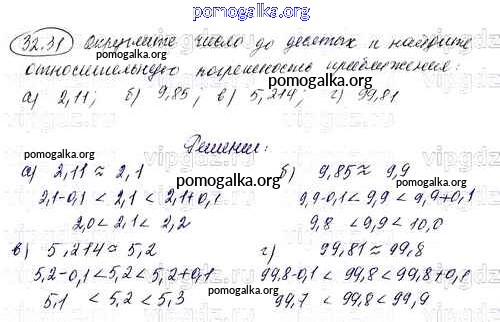 pomogalka.org
32.31 Округлите число до десятых и найдите
относительную погрешность приближения:
а) 2,11; б) 9,85; в) 5,214; г) 99,81
pomogalka.org
Решение:
pomogalka.org
а) 2,11 ≈ 2,1 б) 9,85 ≈ 9,9
2,1-0,1 < 2,1 < 2,1+0,1 9,9-0,1 < 9,9 < 9,9+0,1
pomogalka.org
2,0 < 2,1 < 2,2 9,8 < 9,9 < 10,0
pomogalka.org
в) 5,214 ≈ 5,2 г) 99,81 ≈ 99,8
5,2-0,1 < 5,2 < 5,2+0,1 99,8-0,1 < 99,8 < 99,8+0,1
5,1 < 5,2 < 5,3 99,7 < 99,8 < 99,9
pomogalka.org